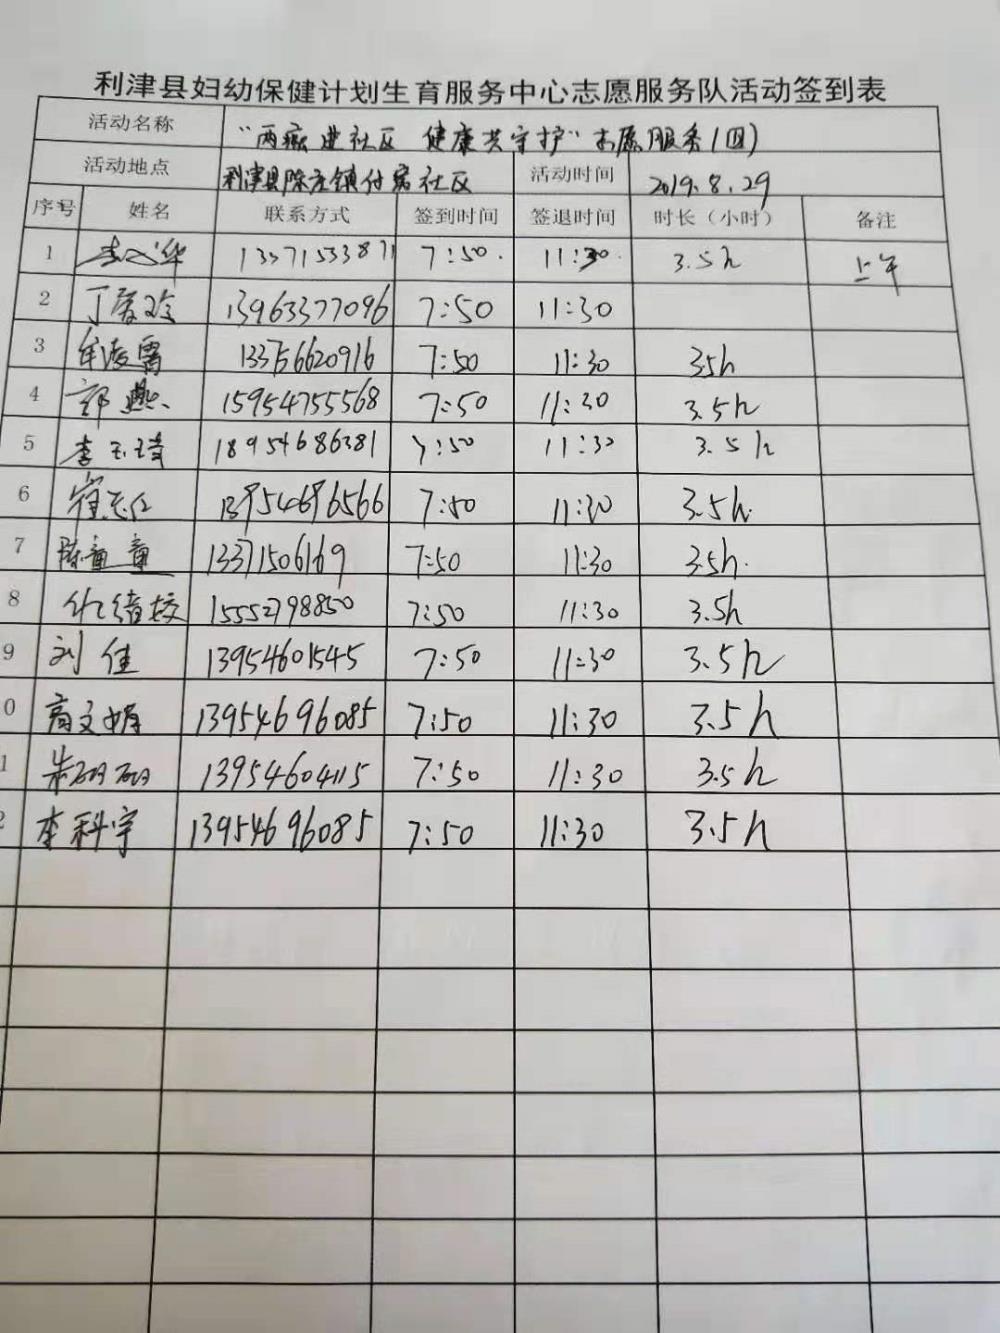 利津县妇幼保健计划生育服务中心志愿服务队活动签到表
活动名称 “两癌进社区 健康共守护”志愿服务(四)
活动地点 利津县陈庄镇付窝社区 活动时间 2019.8.29
序号 姓名 联系方式 签到时间 签退时间 时长（小时） 备注
1 李义华 13371533871 7:50. 11:30. 3.5h 上午
2 13963377096 7:50 11:30
3 13356620916 7:50 11:30 3.5h
4 郭燕 15954755568 7:50 11:30 3.5h
5 李玉琦 18954686381 7:50 11:30 3.5h
6 崔志仁 13954696566 7:50 11:30 3.5h.
7 陈童童 13371506169 7:50 11:30 3.5h.
8 15552798850 7:50 11:30 3.5h
9 刘佳 13954601545 7:50 11:30 3.5h
0 高文娟 13954696085 7:50 11:30 3.5h
1 朱砀砀 13954604115 7:50 11:30 3.5h
2 李科宇 13954696085 7:50 11:30 3.5h